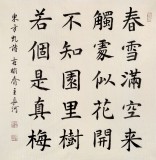 春雪滿空來
觸處似花開
不知園里樹
若個是真梅
東方虬詩